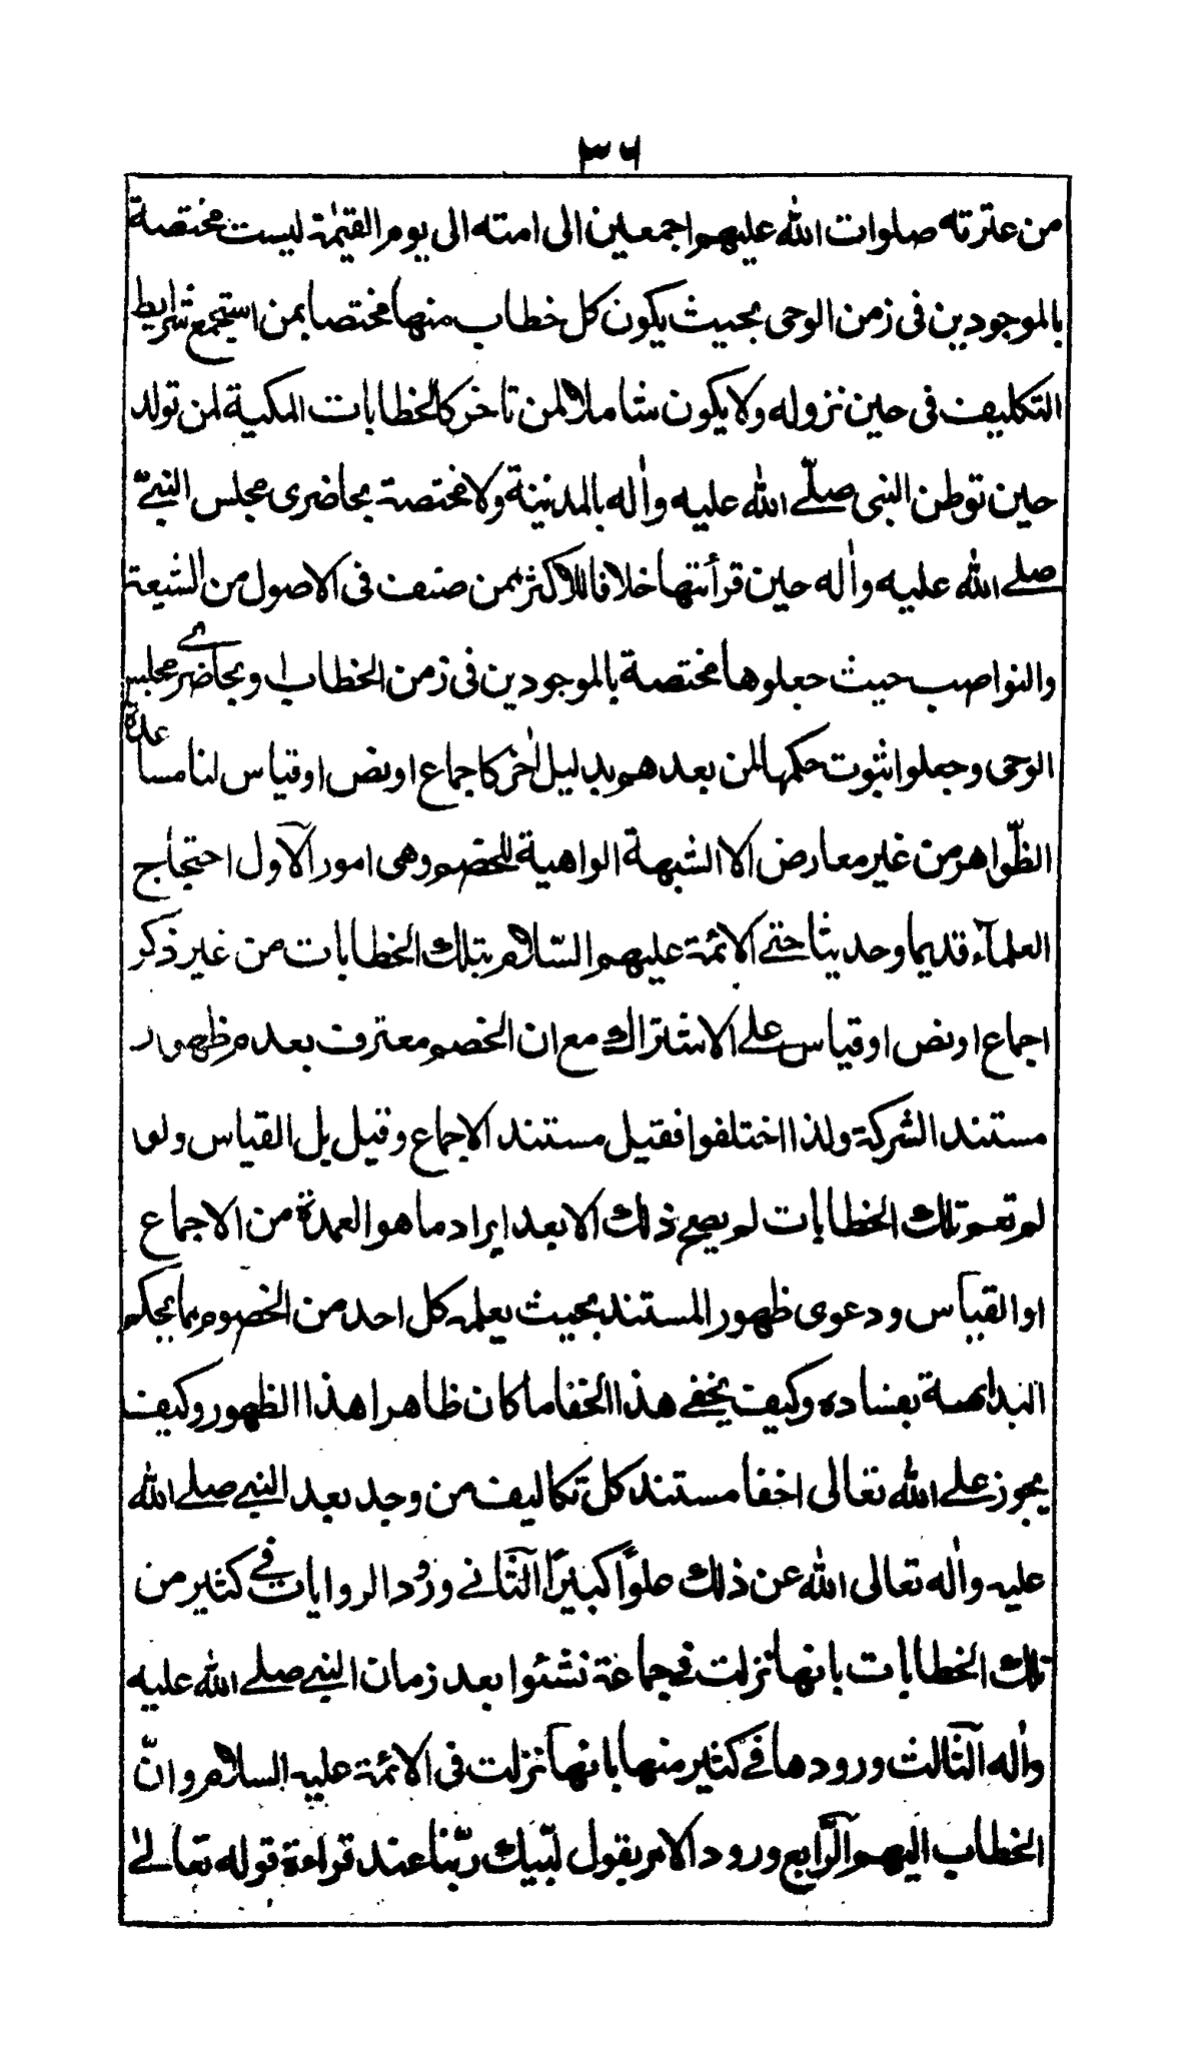 ٣٦
من عترته صلوات الله عليهم اجمعين الى امته الى يوم القيٰمة ليست مختصة
بالموجودين فى زمن الوحى بحيث يكون كل خطاب منها مختصا بمن استجمع شرايط
التكليف فى حين نزوله ولا يكون شاملا لمن تاخر كالخطابات المكية لمن تولد
حين توطن النبى صلّے الله عليه واٰله بالمدينة ولا مختصة بحاضرى مجلس النبيّ
صلے الله عليه واٰله حين قرأتها خلافا للاكثر ممن صنف فى الاصول من الشيعة
والنواصب حيث جعلوها مختصة بالموجودين فى زمن الخطاب او بحاضرے مجلس
الوحى وجعلوا ثبوت حكمها لمن بعدهم بدليل اٰخر كاجماع او نص او قياس لنا مساعدة
الظّواهر من غير معارض الا الشبهة الواهية للخصم وهى امور الآول احتجاج
العلمآء قديما وحديثا حتے الائمة عليهم السّلام بتلك الخطابات من غير ذكر
اجماع او نص او قياس علے الاشتراك مع ان الخصم معترف بعدم ظهور
مستند الشركة ولذا اختلفوا فقيل مستند الاجماع وقيل بل القياس ولو
لم تعم تلك الخطابات لم يصح ذلك الا بعد ايراد ما هو العمدة من الاجماع
او القياس ودعوى ظهور المستند بحيث يعلمه كل احد من الخصوم مما يحكم
البداهة بفساده وكيف يخفے هذا الخفا ما كان ظاهرا هذا الظهور وكيف
يجوز علے الله تعالى اخفا مستند كل تكاليف من وجد بعد النبے صلے الله
عليه واٰله تعالى الله عن ذلك علوًا كبيرًا الثّانے ورود الروايات فے كثير من
تلك الخطابات بانها نزلت فے جماعة نشئوا بعد زمان النبے صلے الله عليه
واٰله الثّالث ورودها فے كثير منها بانها نزلت فى الائمة عليه السلام وانّ
الخطاب اليهم الرّابع ورود الامر بقول لبّيك ربّنا عند قراءة قوله تعالےٰ